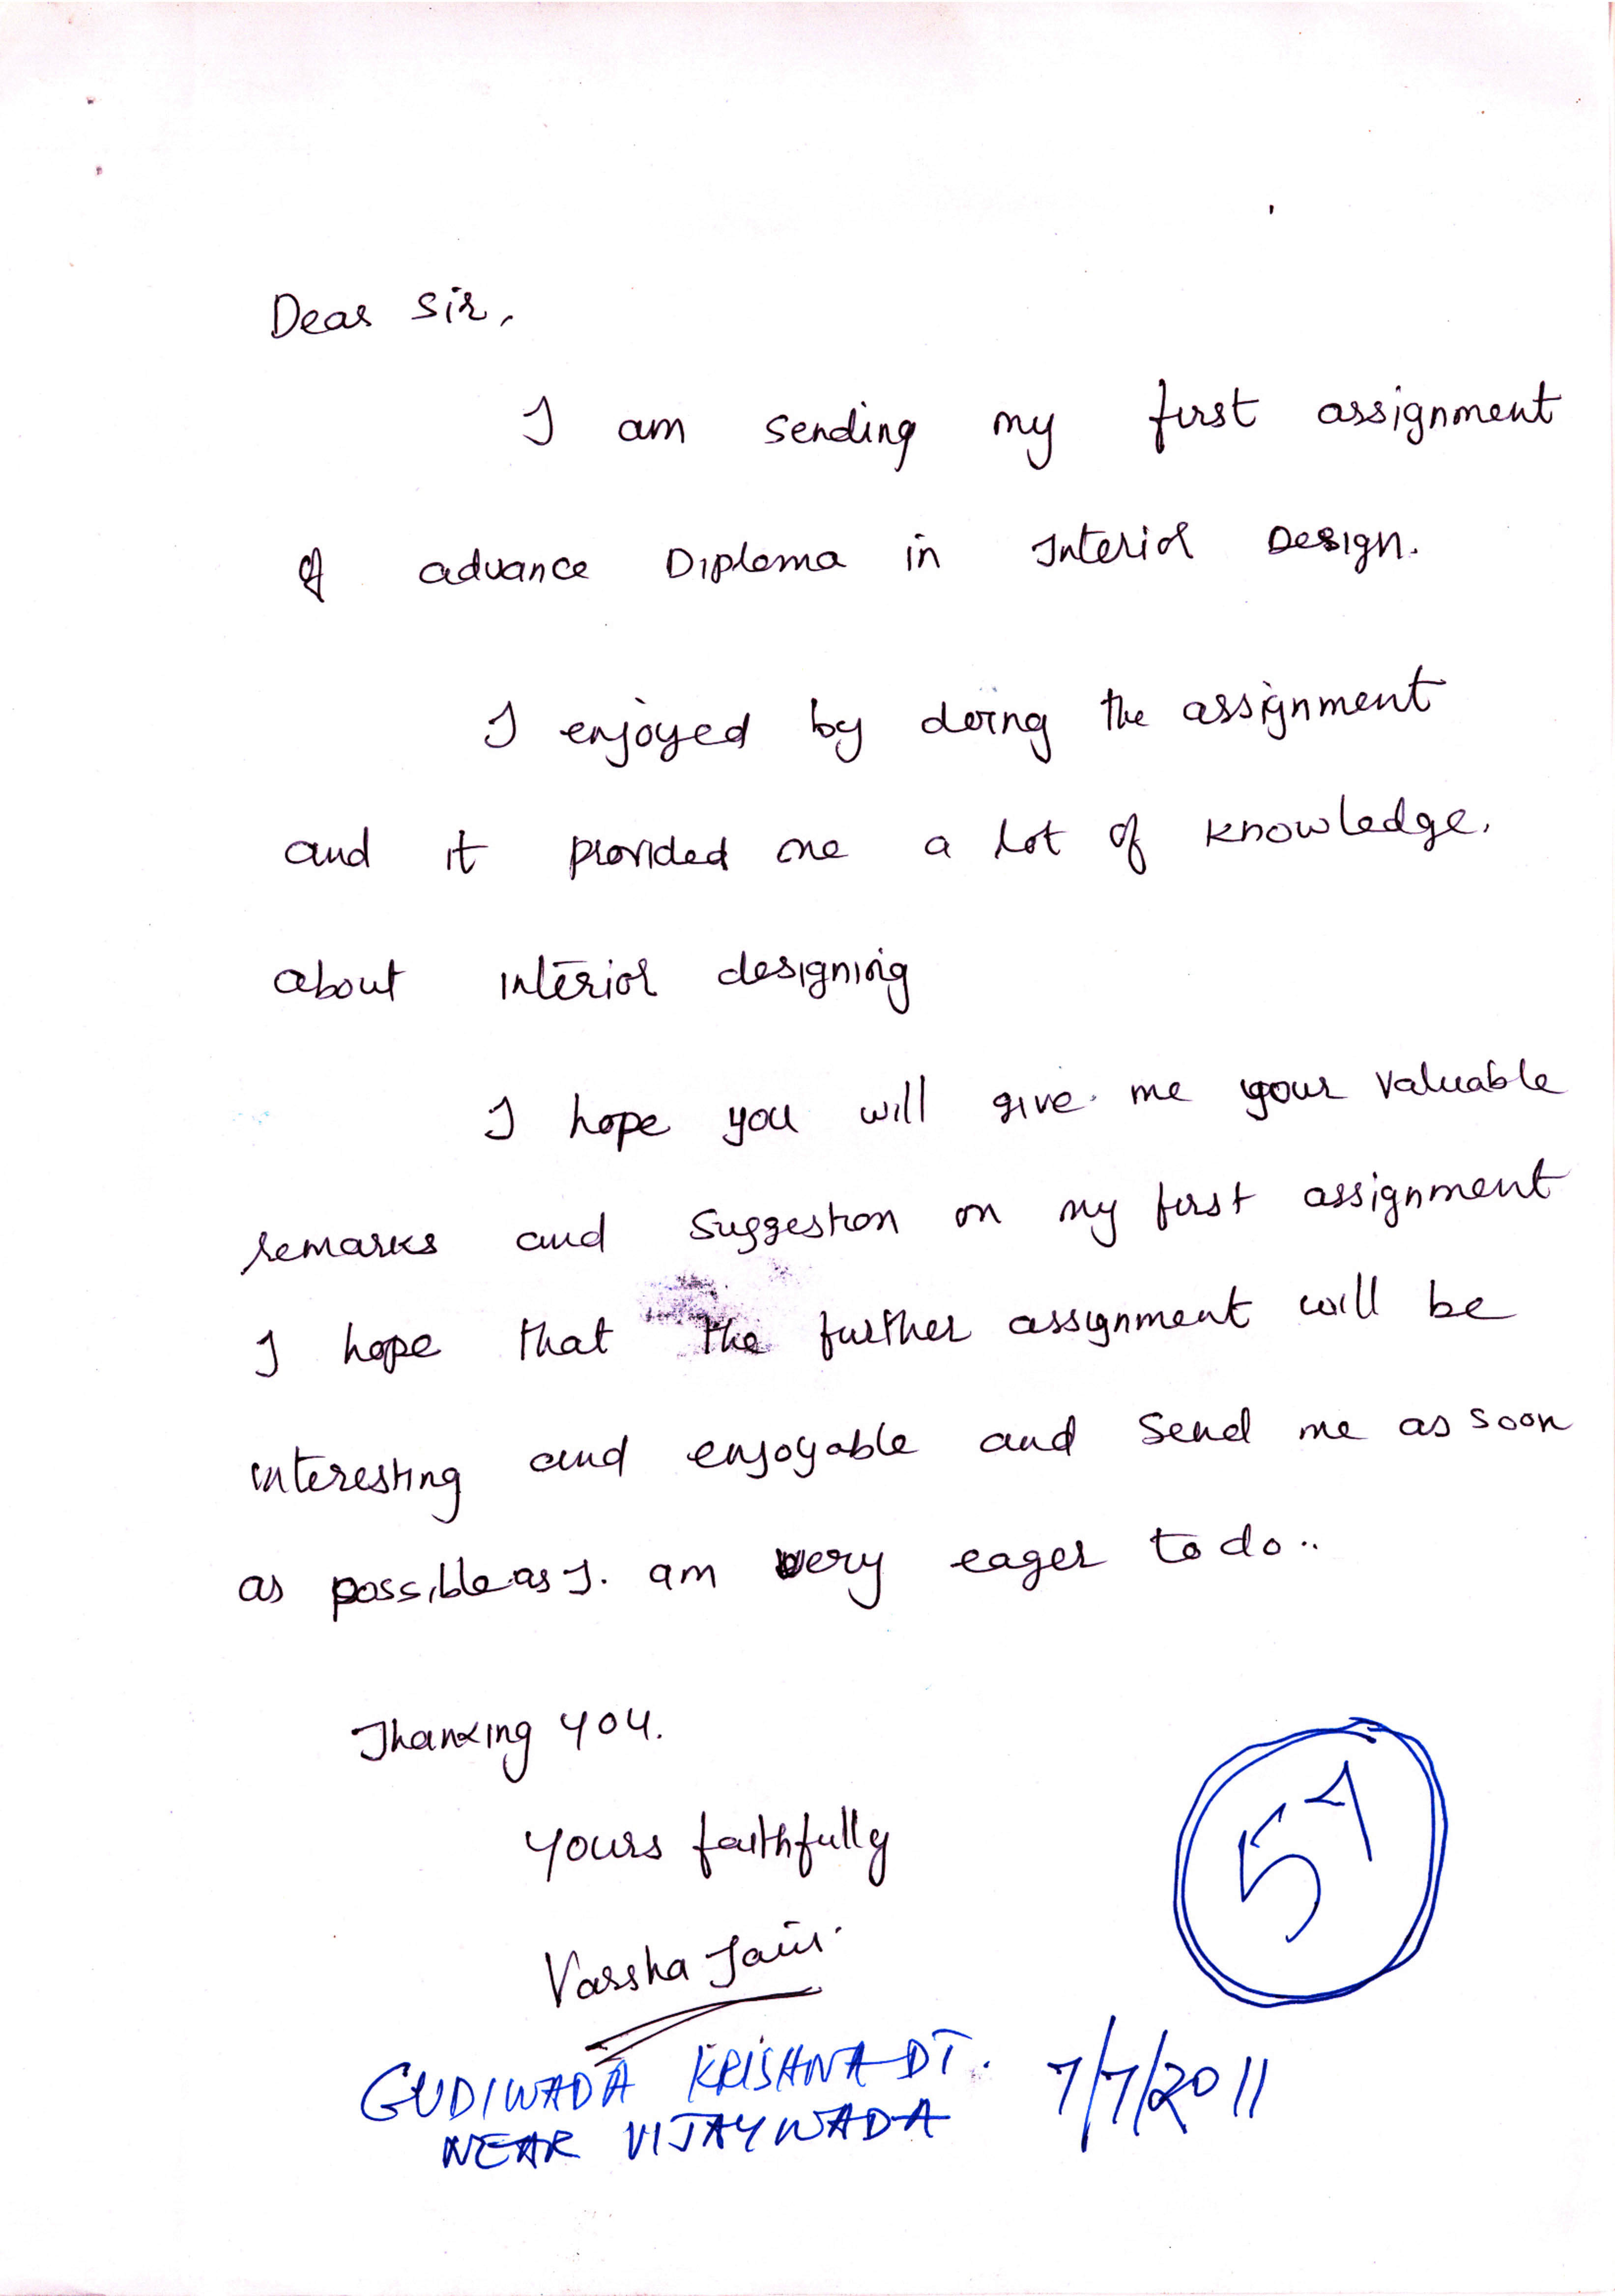 Dear Sir,
I am sending my first assignment
of advance Diploma in Interior Design.
I enjoyed by doing the assignment
and it provided me a lot of knowledge.
about interior designing
I hope you will give me your valuable
remarks and suggestion on my first assignment
I hope that the further assignment will be
interesting and enjoyable and send me as soon
as possible as I. am very eager to do..
Thanking you.
Yours faithfully
Varsha Jain.
51
GUDIWADA KRISHNA DT. 7/7/2011
NEAR VIJAYWADA